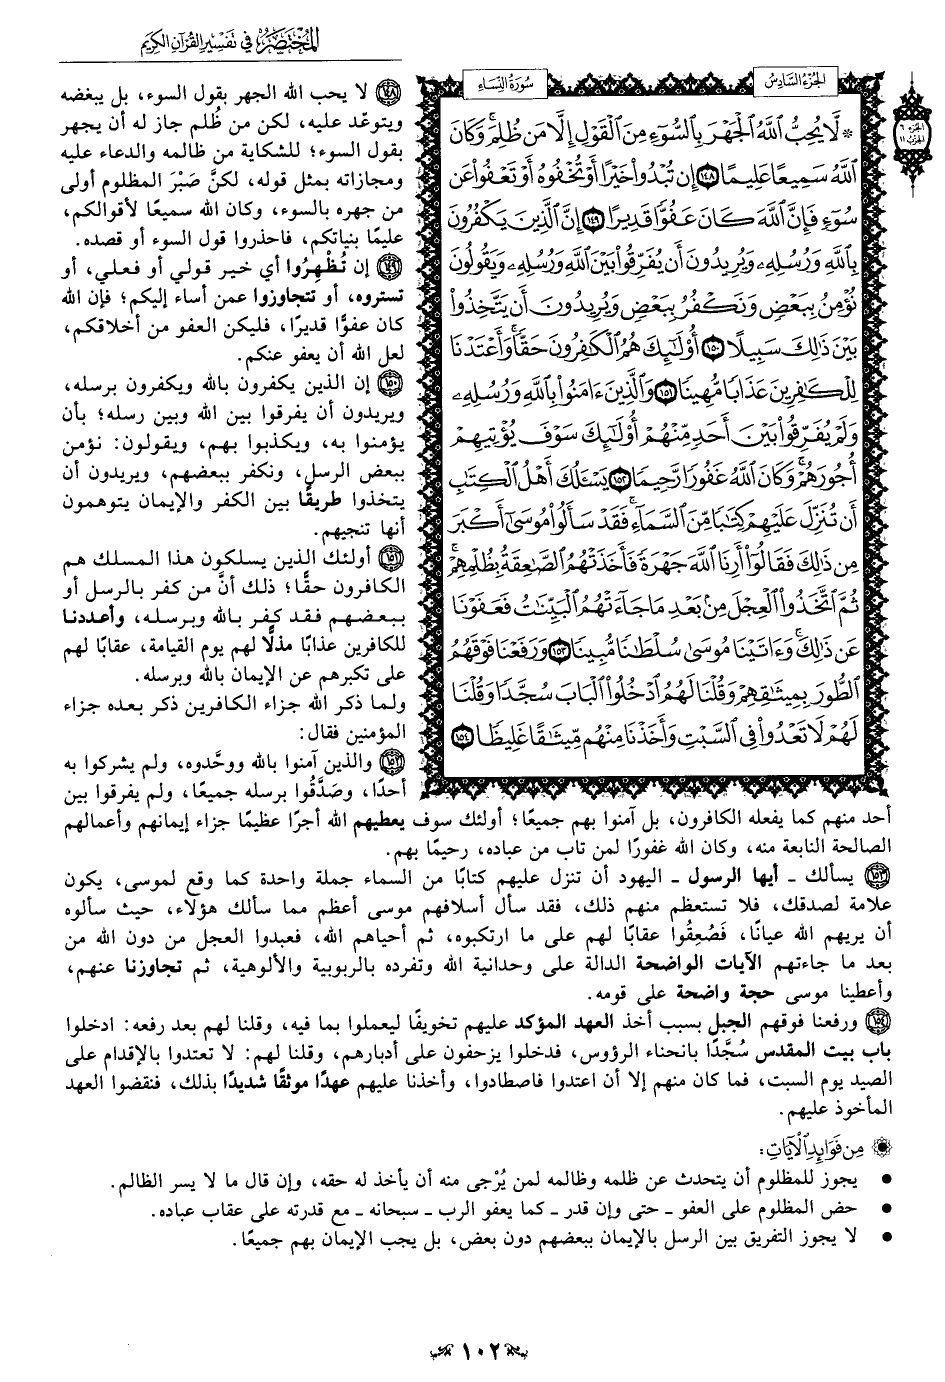 المختصر في تفسير القرآن الكريم
الجزء السادس
سورة النساء
الجزء ٦
الحزب ١١
* لَّا يُحِبُّ ٱللَّهُ ٱلْجَهْرَ بِٱلسُّوٓءِ مِنَ ٱلْقَوْلِ إِلَّا مَن ظُلِمَ ۚ وَكَانَ
ٱللَّهُ سَمِيعًا عَلِيمًا ١٤٨ إِن تُبْدُوا۟ خَيْرًا أَوْ تُخْفُوهُ أَوْ تَعْفُوا۟ عَن
سُوٓءٍ فَإِنَّ ٱللَّهَ كَانَ عَفُوًّا قَدِيرًا ١٤٩ إِنَّ ٱلَّذِينَ يَكْفُرُونَ
بِٱللَّهِ وَرُسُلِهِۦ وَيُرِيدُونَ أَن يُفَرِّقُوا۟ بَيْنَ ٱللَّهِ وَرُسُلِهِۦ وَيَقُولُونَ
نُؤْمِنُ بِبَعْضٍ وَنَكْفُرُ بِبَعْضٍ وَيُرِيدُونَ أَن يَتَّخِذُوا۟
بَيْنَ ذَٰلِكَ سَبِيلًا ١٥٠ أُو۟لَٰٓئِكَ هُمُ ٱلْكَٰفِرُونَ حَقًّا ۚ وَأَعْتَدْنَا
لِلْكَٰفِرِينَ عَذَابًا مُّهِينًا ١٥١ وَٱلَّذِينَ ءَامَنُوا۟ بِٱللَّهِ وَرُسُلِهِۦ
وَلَمْ يُفَرِّقُوا۟ بَيْنَ أَحَدٍ مِّنْهُمْ أُو۟لَٰٓئِكَ سَوْفَ يُؤْتِيهِمْ
أُجُورَهُمْ ۗ وَكَانَ ٱللَّهُ غَفُورًا رَّحِيمًا ١٥٢ يَسْـَٔلُكَ أَهْلُ ٱلْكِتَٰبِ
أَن تُنَزِّلَ عَلَيْهِمْ كِتَٰبًا مِّنَ ٱلسَّمَآءِ ۚ فَقَدْ سَأَلُوا۟ مُوسَىٰٓ أَكْبَرَ
مِن ذَٰلِكَ فَقَالُوٓا۟ أَرِنَا ٱللَّهَ جَهْرَةً فَأَخَذَتْهُمُ ٱلصَّٰعِقَةُ بِظُلْمِهِمْ ۚ
ثُمَّ ٱتَّخَذُوا۟ ٱلْعِجْلَ مِنۢ بَعْدِ مَا جَآءَتْهُمُ ٱلْبَيِّنَٰتُ فَعَفَوْنَا
عَن ذَٰلِكَ ۚ وَءَاتَيْنَا مُوسَىٰ سُلْطَٰنًا مُّبِينًا ١٥٣ وَرَفَعْنَا فَوْقَهُمُ
ٱلطُّورَ بِمِيثَٰقِهِمْ وَقُلْنَا لَهُمُ ٱدْخُلُوا۟ ٱلْبَابَ سُجَّدًا وَقُلْنَا
لَهُمْ لَا تَعْدُوا۟ فِى ٱلسَّبْتِ وَأَخَذْنَا مِنْهُم مِّيثَٰقًا غَلِيظًا ١٥٤
١٤٨ لا يحب الله الجهر بقول السوء، بل يبغضه
ويتوعّد عليه، لكن من ظُلم جاز له أن يجهر
بقول السوء؛ للشكاية من ظالمه والدعاء عليه
ومجازاته بمثل قوله، لكنَّ صَبْرَ المظلوم أولى
من جهره بالسوء، وكان الله سميعًا لأقوالكم،
عليمًا بنياتكم، فاحذروا قول السوء أو قصده.
١٤٩ إن تُظْهِرُوا أي خير قولي أو فعلي، أو
تستروه، أو تتجاوزوا عمن أساء إليكم؛ فإن الله
كان عفوًّا قديرًا، فليكن العفو من أخلاقكم،
لعل الله أن يعفو عنكم.
١٥٠ إن الذين يكفرون بالله ويكفرون برسله،
ويريدون أن يفرقوا بين الله وبين رسله؛ بأن
يؤمنوا به، ويكذبوا بهم، ويقولون: نؤمن
ببعض الرسل، ونكفر ببعضهم، ويريدون أن
يتخذوا طريقًا بين الكفر والإيمان يتوهمون
أنها تنجيهم.
١٥١ أولئك الذين يسلكون هذا المسلك هم
الكافرون حقًّا؛ ذلك أنَّ من كفر بالرسل أو
ببعضهم فقد كفر بالله وبرسله، وأعددنا
للكافرين عذابًا مذلًّا لهم يوم القيامة، عقابًا لهم
على تكبرهم عن الإيمان بالله وبرسله.
ولما ذكر الله جزاء الكافرين ذكر بعده جزاء
المؤمنين فقال:
١٥٢ والذين آمنوا بالله ووحَّدوه، ولم يشركوا به
أحدًا، وصَدَّقُوا برسله جميعًا، ولم يفرقوا بين
أحد منهم كما يفعله الكافرون، بل آمنوا بهم جميعًا؛ أولئك سوف يعطيهم الله أجرًا عظيمًا جزاء إيمانهم وأعمالهم
الصالحة النابعة منه، وكان الله غفورًا لمن تاب من عباده، رحيمًا بهم.
١٥٣ يسألك ـ أيها الرسول ـ اليهود أن تنزل عليهم كتابًا من السماء جملة واحدة كما وقع لموسى، يكون
علامة لصدقك، فلا تستعظم منهم ذلك، فقد سأل أسلافهم موسى أعظم مما سألك هؤلاء، حيث سألوه
أن يريهم الله عيانًا، فَصُعِقُوا عقابًا لهم على ما ارتكبوه، ثم أحياهم الله، فعبدوا العجل من دون الله من
بعد ما جاءتهم الآيات الواضحة الدالة على وحدانية الله وتفرده بالربوبية والألوهية، ثم تجاوزنا عنهم،
وأعطينا موسى حجة واضحة على قومه.
١٥٤ ورفعنا فوقهم الجبل بسبب أخذ العهد المؤكد عليهم تخويفًا ليعملوا بما فيه، وقلنا لهم بعد رفعه: ادخلوا
باب بيت المقدس سُجَّدًا بانحناء الرؤوس، فدخلوا يزحفون على أدبارهم، وقلنا لهم: لا تعتدوا بالإقدام على
الصيد يوم السبت، فما كان منهم إلا أن اعتدوا فاصطادوا، وأخذنا عليهم عهدًا موثقًا شديدًا بذلك، فنقضوا العهد
المأخوذ عليهم.
من فوائد الآيات:
● يجوز للمظلوم أن يتحدث عن ظلمه وظالمه لمن يُرْجى منه أن يأخذ له حقه، وإن قال ما لا يسر الظالم.
● حض المظلوم على العفو ـ حتى وإن قدر ـ كما يعفو الرب ـ سبحانه ـ مع قدرته على عقاب عباده.
● لا يجوز التفريق بين الرسل بالإيمان ببعضهم دون بعض، بل يجب الإيمان بهم جميعًا.
١٠٢